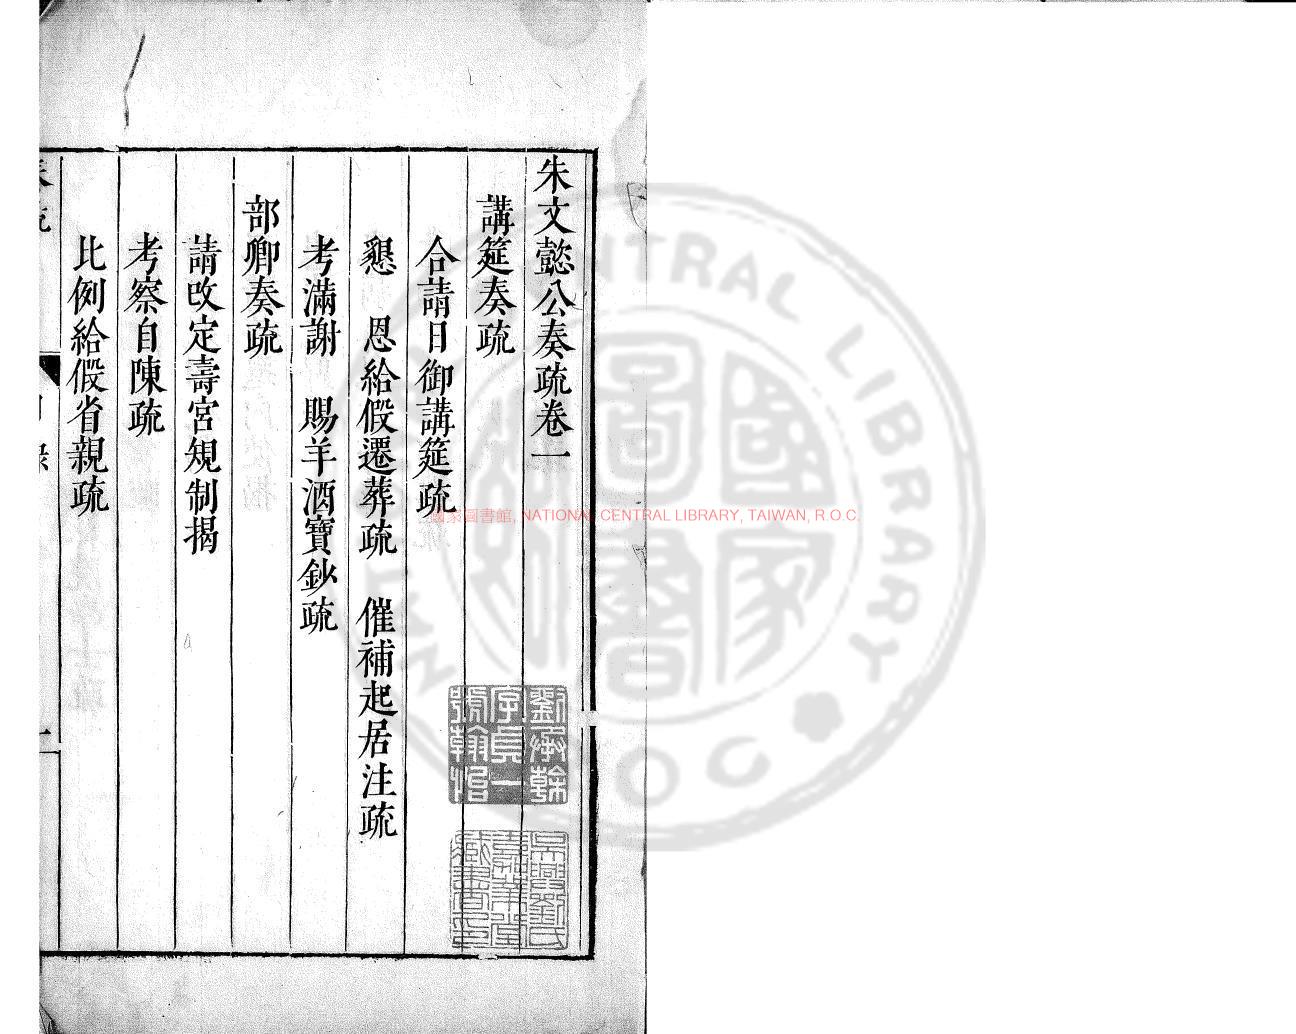 朱文懿公奏疏卷一
講筵奏疏
合請日御講筵疏
懇　恩給假遷葬疏　催補起居注疏
考滿謝　賜羊酒寶鈔疏
部卿奏疏
請改定壽宮規制揭
考察自陳疏
比例給假省親疏
劉承幹
字貞一
號翰怡
吳興劉氏
嘉業堂
藏書印
國家圖書館, NATIONAL CENTRAL LIBRARY, TAIWAN, R.O.C.
NATIONAL CENTRAL LIBRARY R.O.C.
國家圖書